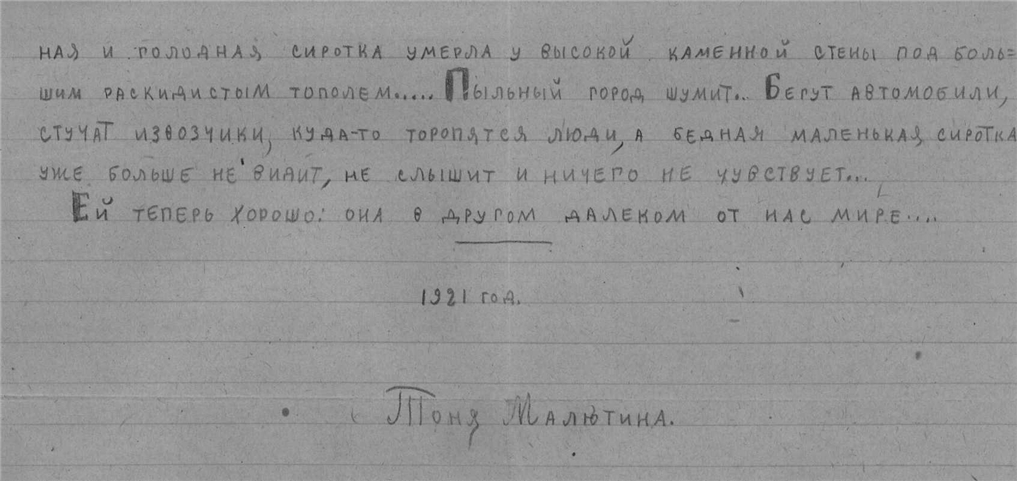 ная и голодная, сиротка умерла у высокой каменной стены под боль=
шим раскидистым тополем..... Пыльный город шумит... Бегут автомобили,
стучат извозчики, куда-то торопятся люди, а бедная маленькая сиротка
уже больше не видит, не слышит и ничего не чувствует...
Ей теперь хорошо: она в другом далеком от нас мире....
1921 год.
Тоня Малютина.